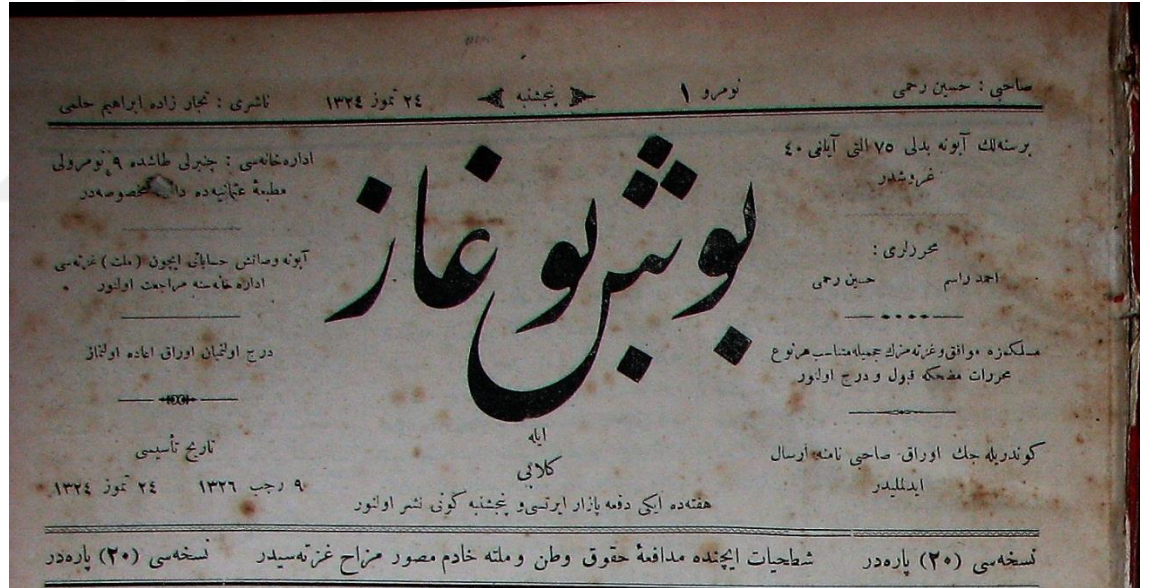 صاحبی : حسین رحمی
نومرو ۱
پنجشنبه
۲٤ تموز ۱۳۲٤
ناشری : تجار زاده ابراهیم حلمی
برسنه‌لك آبونه بدلی ۷۵ التی آیلغی ٤۰
غروشدر
محررلری :
احمد راسم حسین رحمی
مسلكمزه موافق وغزته‌مزك حجمیله متناسب هرنوع
محررات مضحكه قبول و درج اولنور
كوندریله جك اوراق صاحبی نامنه ارسال
ایدلملیدر
بوشبوغاز
ایله
كلابی
هفته‌ده ایكی دفعه پازار ایرتسی و پنجشنبه كونی نشر اولنور
اداره‌خانه‌سی : چنبرلی طاشده ۹ نومرولی
مطبعهٔ عثمانیه‌ده مخصوصه‌در
آبونه وصاتش حساباتی ایچون (ملت) غزته‌سی
اداره‌خانه‌سنه مراجعت اولنور
درج اولنمیان اوراق اعاده اولنماز
تاریخ تأسیسی
۹ رجب ۱۳۲٦ ۲٤ تموز ۱۳۲٤
نسخه‌سی (۲۰) پاره‌در شطحیات ایچنده مدافعهٔ حقوق وطن وملته خادم مصور مزاح غزته‌سیدر نسخه‌سی (۲۰) پاره‌در